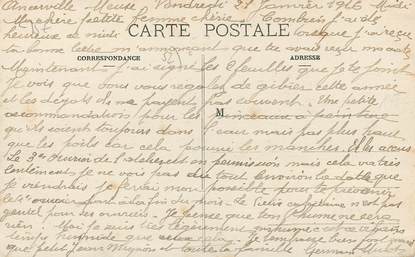 Ancerville Meuse Vendredi 21 Janvier 1916 Midi
Ma chère petite femme chérie Combien j'ai de
heureux de midi lorsque j'ai reçu
CARTE POSTALE
ta bonne lettre m'annonçant que tu avais reçu
CORRESPONDANCE
ADRESSE
Maintenant j'ai signé les 2 feuilles que je te joint
Je vois que vous vous régalez de gibier cette année
et les dégats ils ne payent pas souvent. Une petite
recommandation pour les pinceaux à peinture
M
qu'ils soient toujours dans l'eau mais pas plus haut
que les poils car cela pourri les manches
Le 3e ouvrier de l'atelier est en permission mais cela va très
lentement je ne vois pas du tout environ la date que
je viendrais je ferai mon possible pour te prévenir
gentil pour ses ouvriers. Je pense que ton rhume ne sera
rien. Moi je suis très légèrement enrhumé
temps humide que Je t'embrasse bien fort ainsi
que petit Jean Mignon et toute la famille Germain